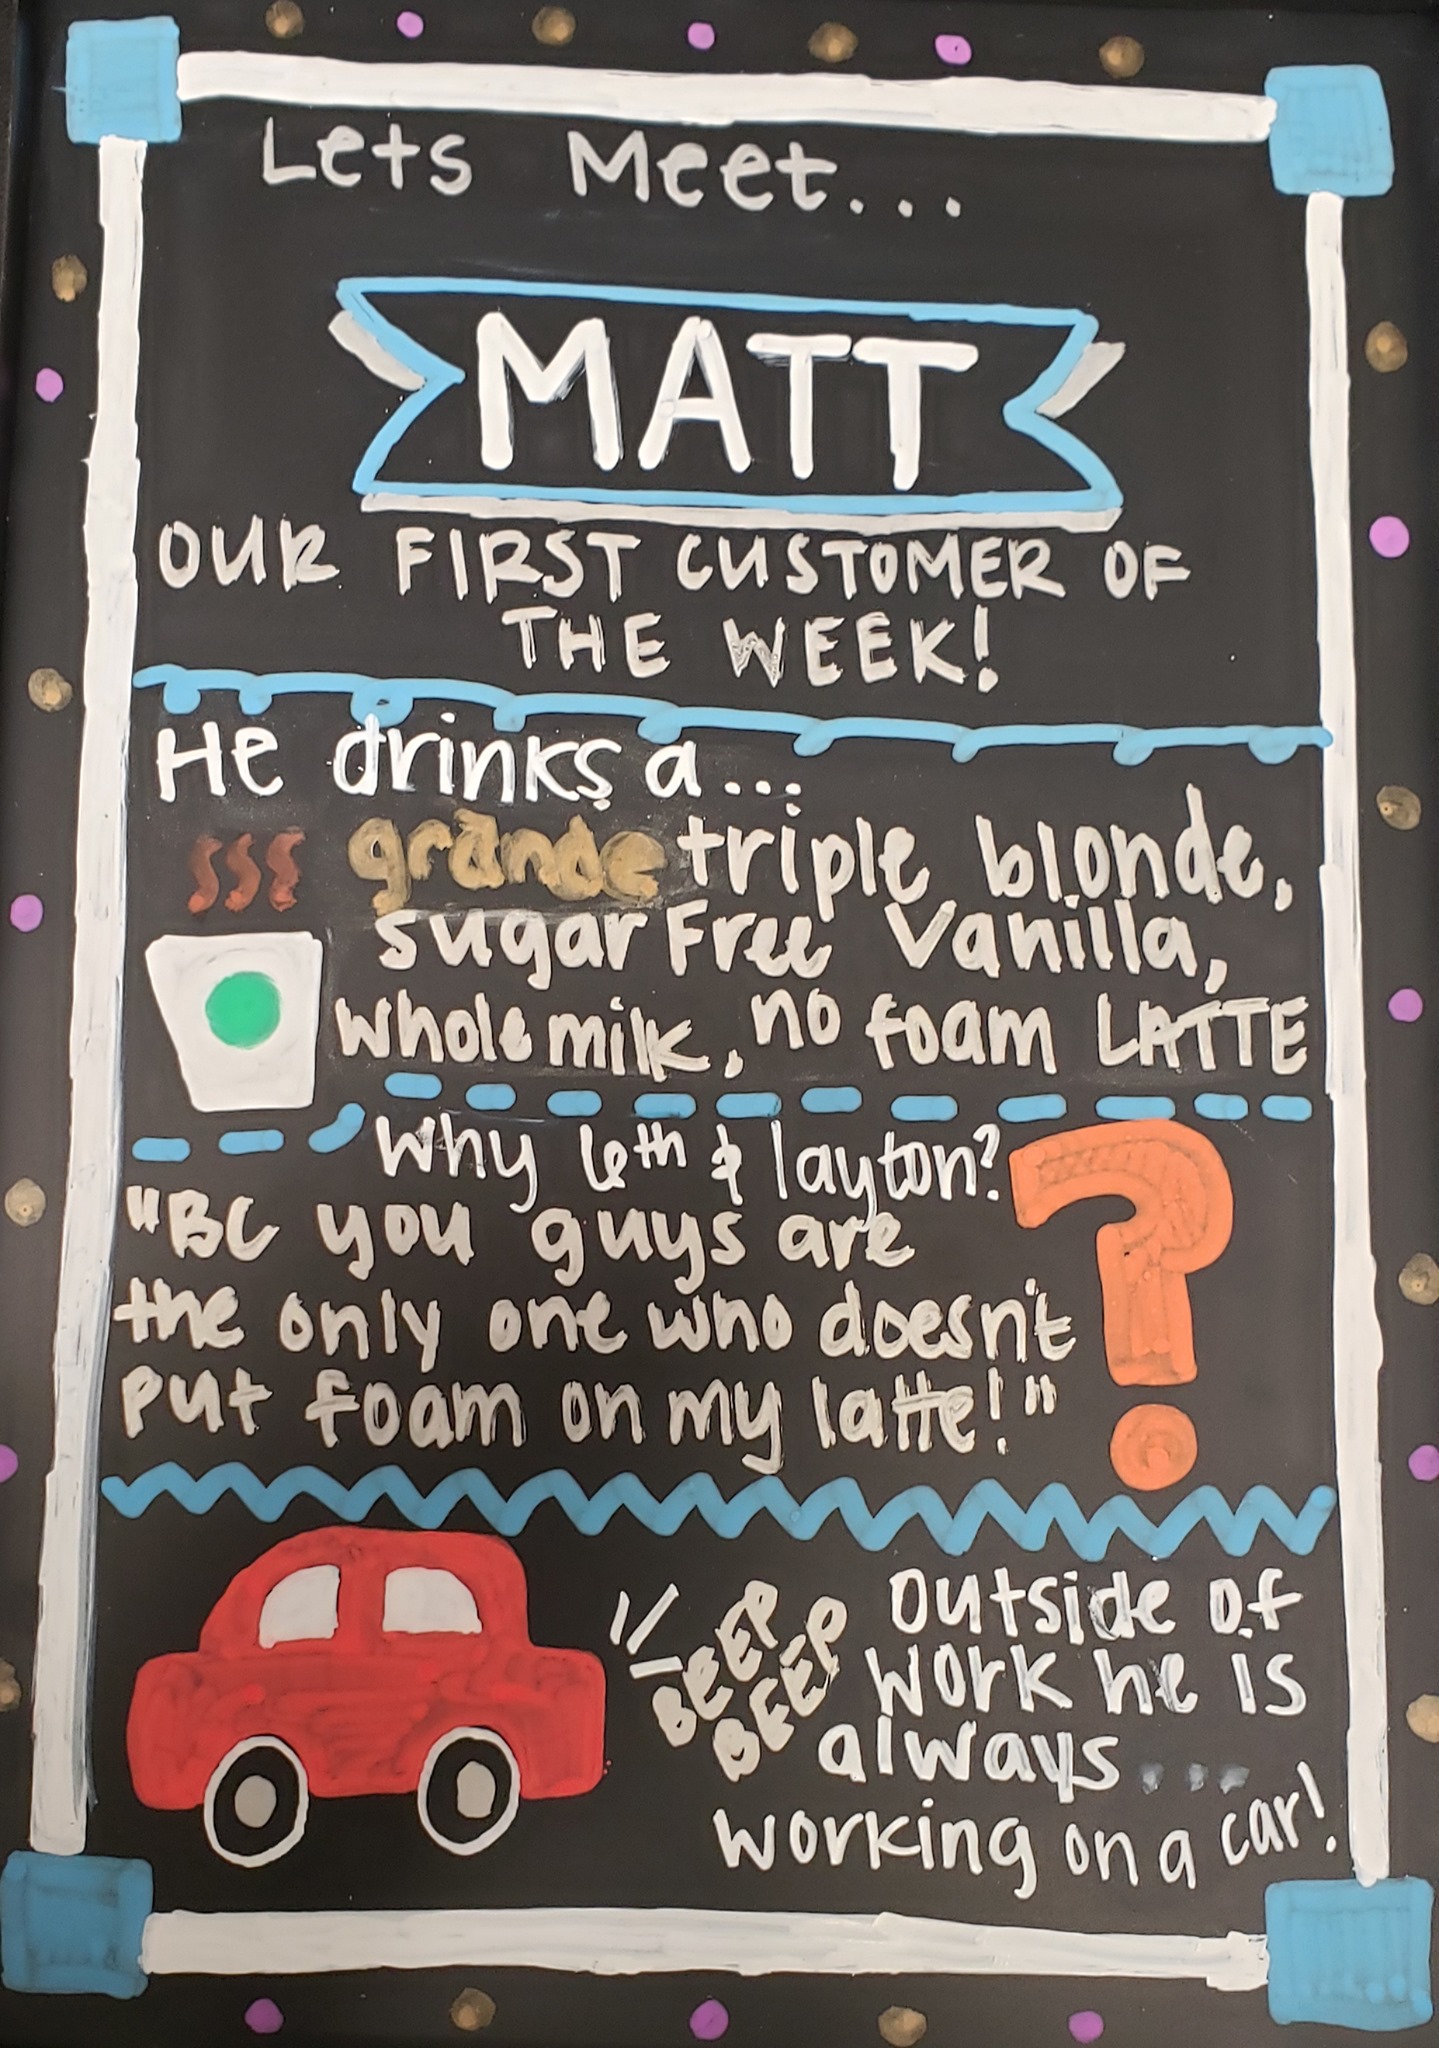 Lets Meet...
MATT
OUR FIRST CUSTOMER OF
THE WEEK!
He drinks a...
grande triple blonde,
sugar Free Vanilla,
whole milk, no foam LATTE
Why 6th & layton?
"BC you guys are
the only one who doesn't
put foam on my latte!"
BEEP
BEEP
Outside of
work he is
always...
working on a car!